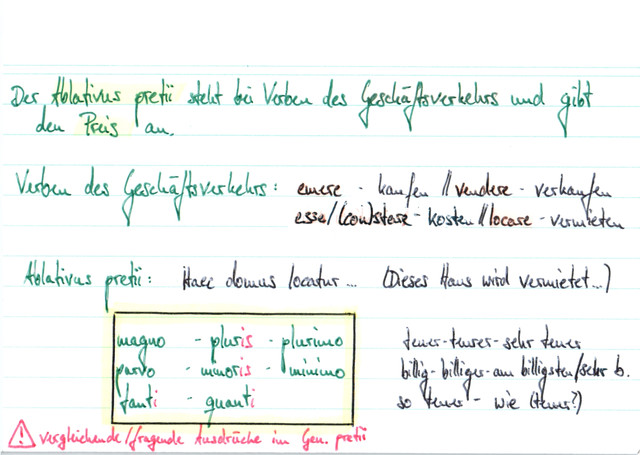 Der Ablativus pretii steht bei Verben des Geschäftsverkehrs und gibt
den Preis an.
Verben des Geschäftsverkehrs: emere - kaufen // vendere - verkaufen
esse/(con)stare - kosten // locare - vermieten
Ablativus pretii: Haec domus locatur... (Dieses Haus wird vermietet...)
magno - pluris - plurimo teuer-teurer-sehr teuer
parvo - minoris - minimo billig-billiger-am billigsten/sehr b.
tanti - quanti so teuer - wie (teuer?)
vergleichende/fragende Ausdrücke im Gen. pretii